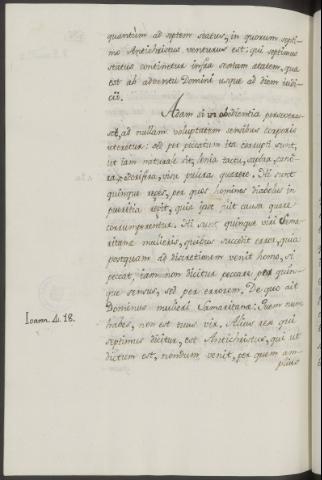 quantum ad septem status, in quorum septi-
mo Antichristus venturus est: qui septimus
status continetur infra sextam ætatem, quæ
est ab adventu Domini usque ad diem iudi-
cii.
Adam si in obidientia perseveras-
set, ad nullam voluptatem sensibus corporis
uteretur: sed per peccatum ita corrupti sunt,
ut iam naturale sit, lenia tactu,
visu pulcra quærere. Hi sunt
quinque reges, per quos homines diabolus in
pueritia regit, quia ipse fuit causa quare
corrumperentur. Hi sunt quinque viri Sama-
ritanæ mulieris, quibus succedit error, quia
postquam ad discretionem venit homo, si
peccat, iam non dicitur peccare per quin-
que sensus, sed per errorem. De quo ait
Dominus mulieri Samaritanæ: Quem nunc
habes, non est tuus vir. Alius rex qui
Ioann. 4. 18.
septimus dicitur, est Antichristus, qui ut
dictum est, nondum venit, per quem am-
plius